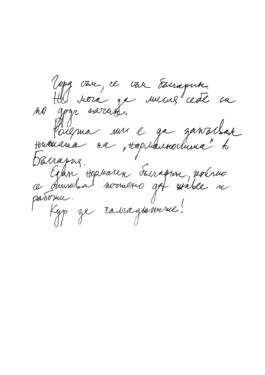 Горд съм, че съм българин.
Не мога да мисля себе си
по друг начин.
Ролята ми е да запазвам
нишката на „нормалността" в
България.
Един нормален българин, който
се опитва почтено да живее и
работи.
Кур за чалгаджиите!